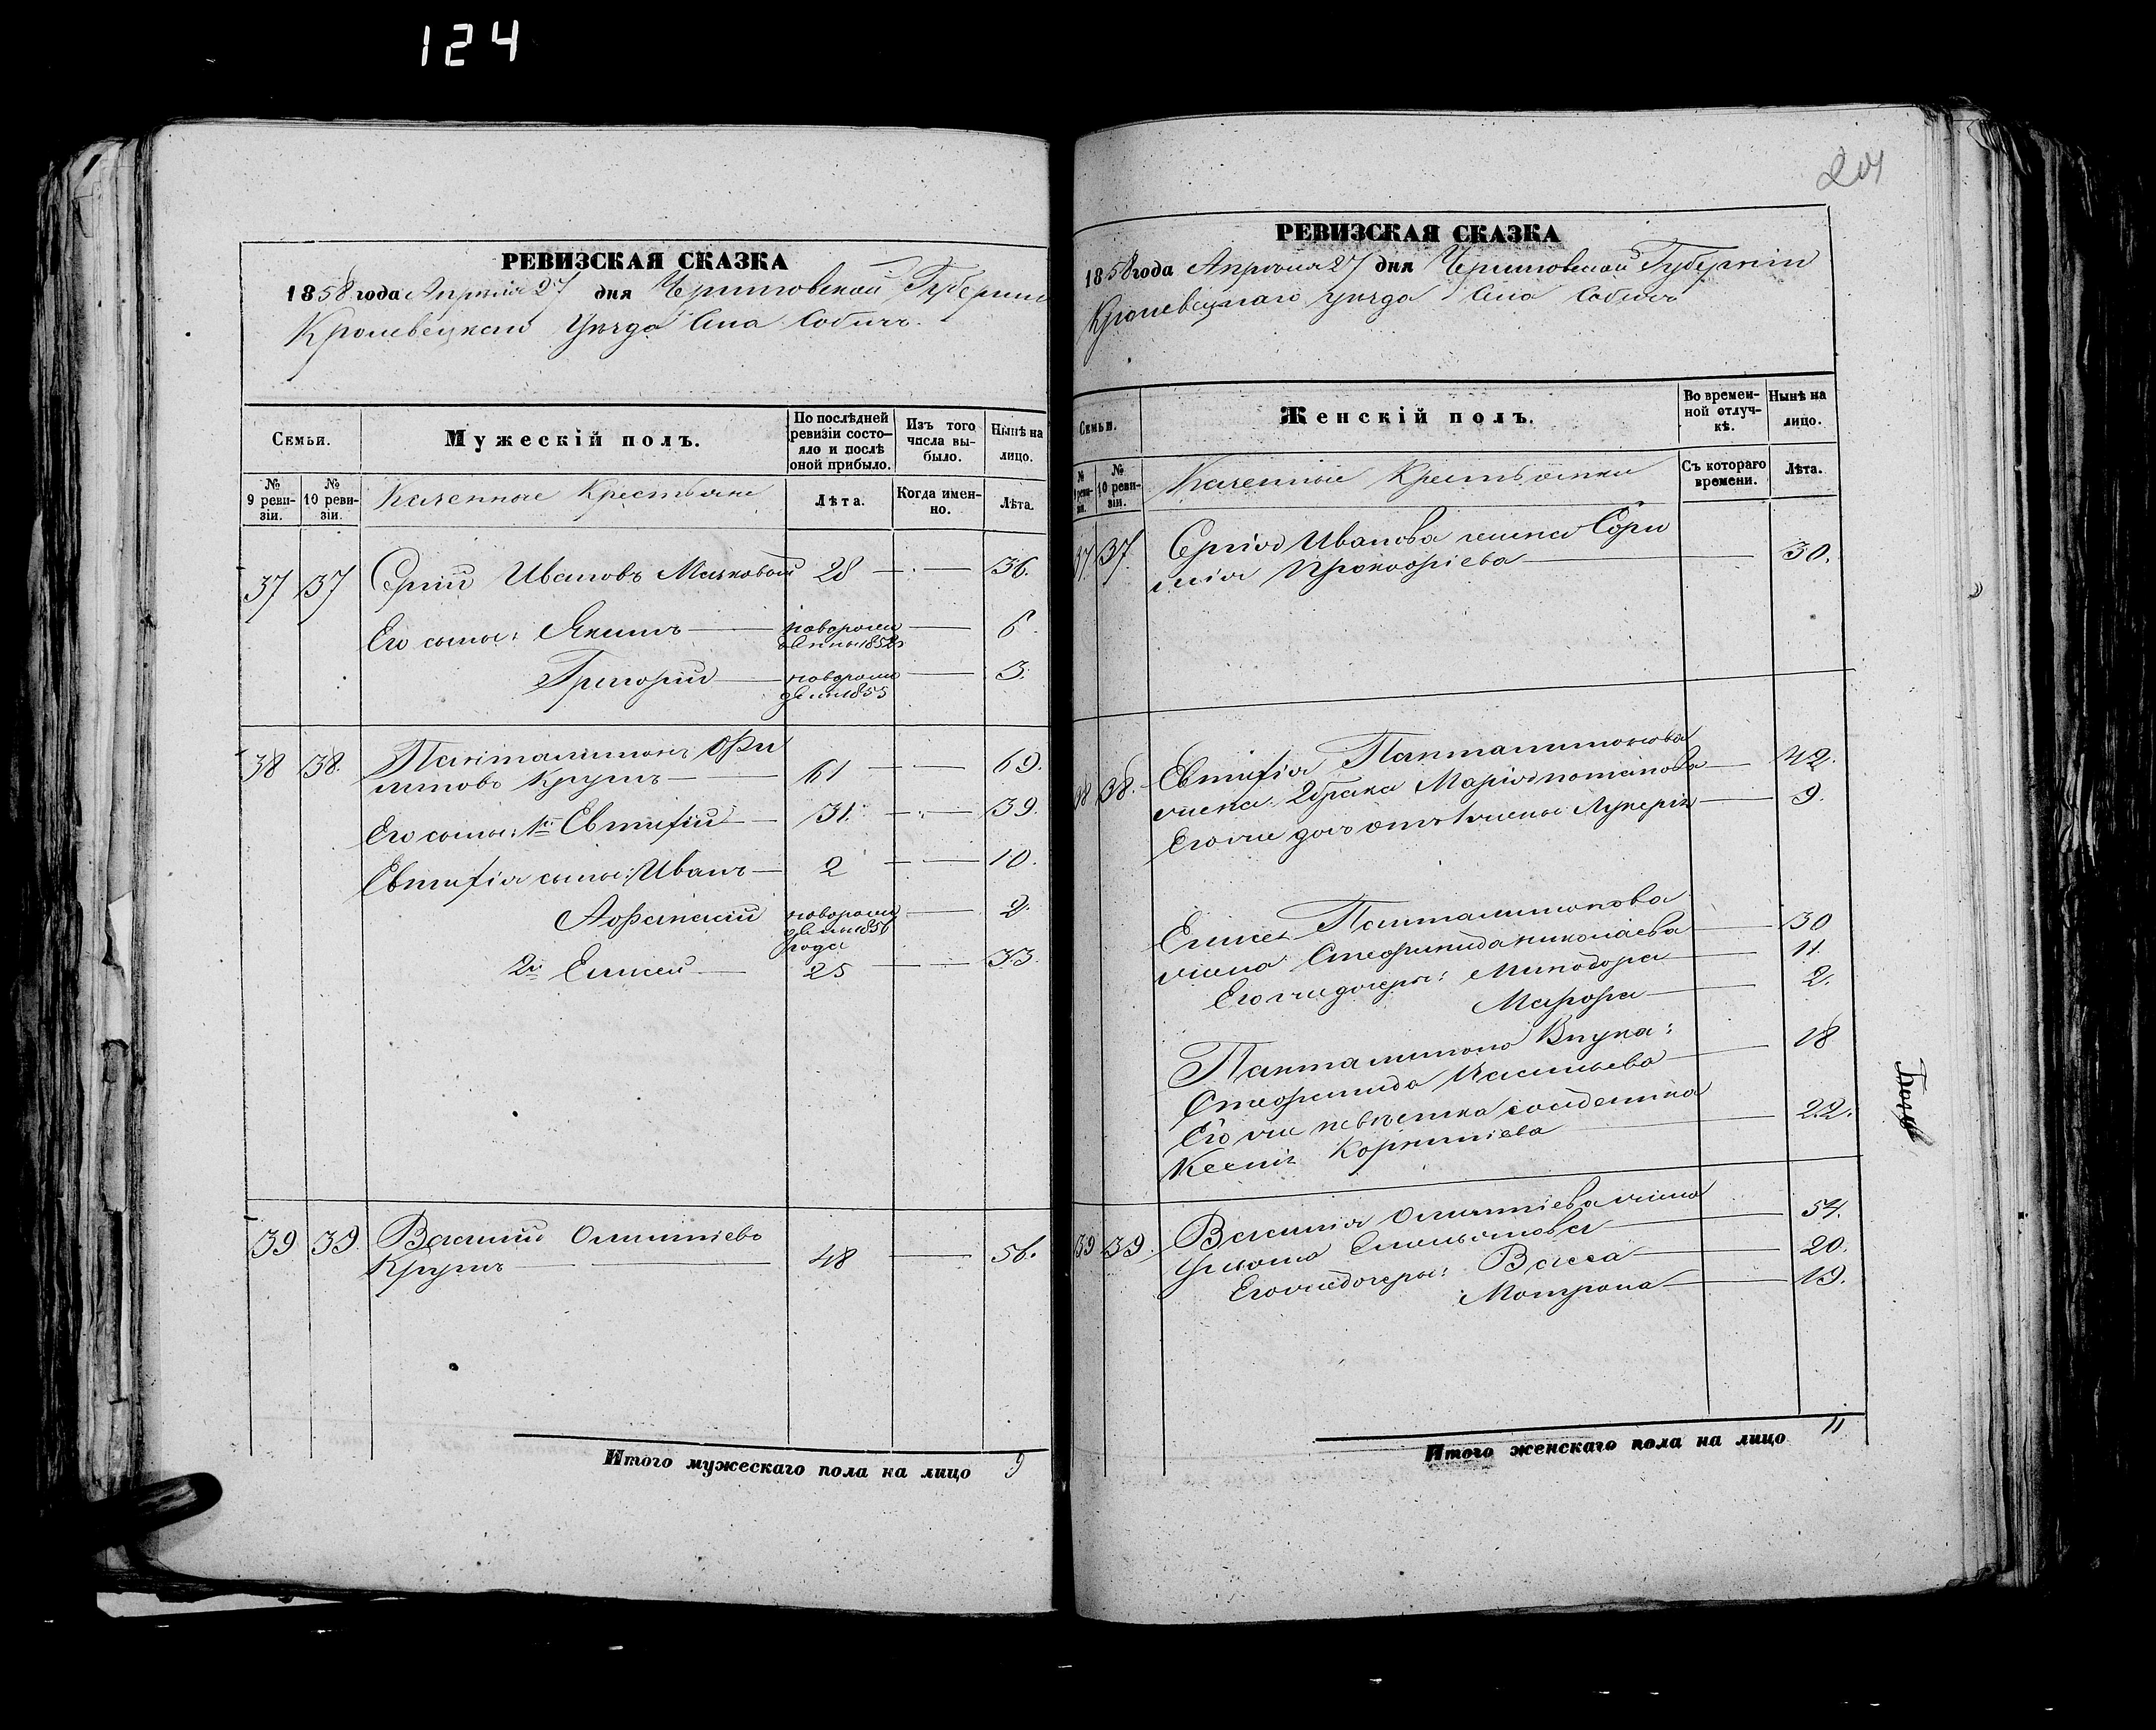 124
РЕВИЗСКАЯ СКАЗКА
1858 года Апреля 27 дня Черниговской Губернии
Кролевецкаго Уезда Села Собичъ.
Семьи.
Мужескій полъ.
По послѣдней ревизіи состояло и послѣ оной прибыло.
Изъ того числа выбыло.
Нынѣ на лицо.
№ 9 ревизіи.
№ 10 ревизіи.
Казенные Крестьяне
Лѣта.
Когда именно.
Лѣта.
37 37 Сергій Ивановъ Мачковой 28 36.
Его сыны: Якимъ новорожденный 1852 6.
Григорій новорожден 1855 3.
38 38. Панталимонъ
Крушъ 61 69.
Его сыны: 1й Евтифій 31. 39.
Евтифія сыны: Иванъ 2 10.
Афанасій новорожденный 1856 года 2.
2й Елисей 25 33.
39 39. Василий Олимпіевъ
Крушъ 48 56.
Итого мужескаго пола на лицо 9
РЕВИЗСКАЯ СКАЗКА
1858 года Апреля 27 дня Черниговской Губерніи
Кролевецкаго уезда Села Собичъ
Семьи.
Женскій полъ.
Во временной отлучкѣ.
Нынѣ на лицо.
№ 9 ревизіи.
№ 10 ревизіи.
Казенные Крестьянки
Съ котораго времени.
Лѣта.
37. 37. Сергія Иванова жена
Прокофіева 30.
38 38. Евтифія Панталимонова
жена 2 брака Марія потапова 42.
Его же дочь отъ 1 жены Лукерія 9.
Елисея Панталимонова
жена Стефанида николаева 30
Его же дочери: Минодора 11.
Мавра 2.
Панталимона Внука:
Стефанида 18
Его же невестка солдатка
Ксенія Корнилиева 22.
39 39. Василія Олимпіева жена
Емельянова 54.
Его же дочери: Васса 20.
Мотрона 19.
Итого женскаго пола на лицо 11